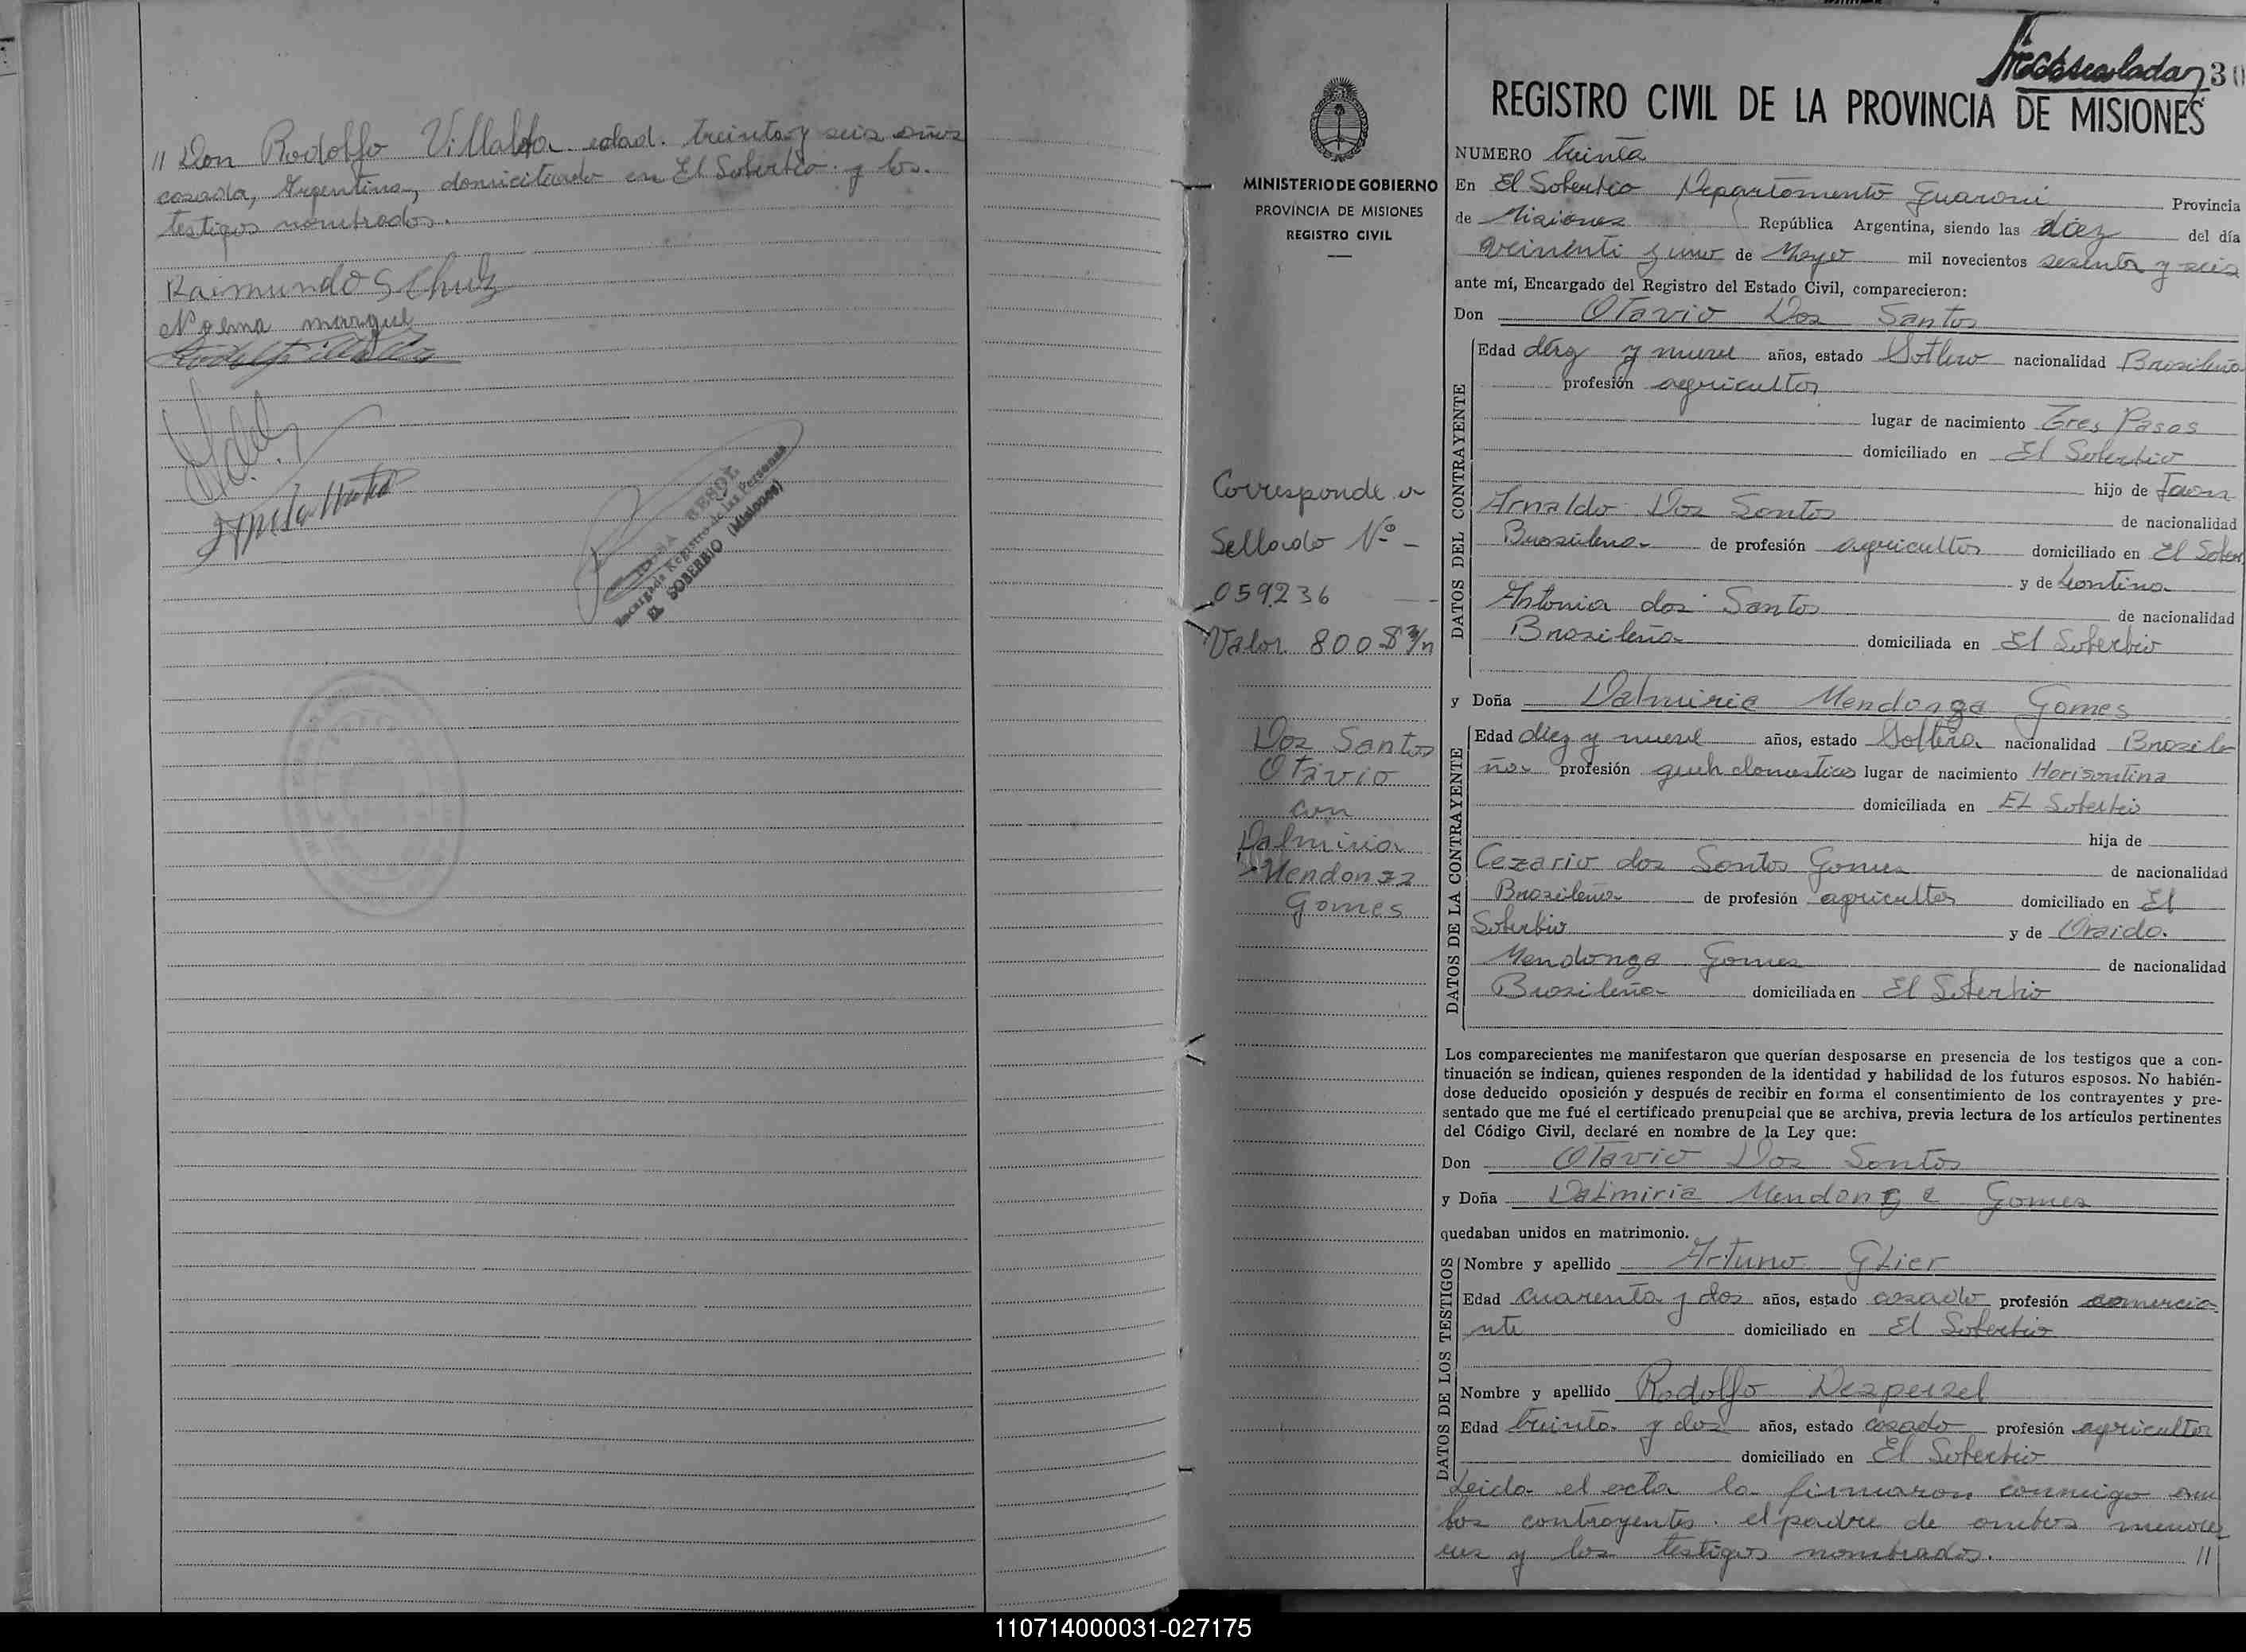 // Don Rodolfo Villalda edad. treinta y seis años
casada, Argentina, domicitardo en El Soberbio y los.
testigos nombrados.
Raimundo Schulz
Noema marquez
GESOL
Encargada Registro de las Personas
EL SOBERBIO (Misiones)
30
REGISTRO CIVIL DE LA PROVINCIA DE MISIONES
MINISTERIO DE GOBIERNO
PROVINCIA DE MISIONES
REGISTRO CIVIL
Corresponde a
Sellado Nº -
059236
Valor 800 $ m/n
Dos Santos
Otavio
con
Dalmiria
Mendonza
Gomes
NUMERO treinta
En El Soberbio Departamento Guarani Provincia
de Misiones República Argentina, siendo las diez del día
veintenti y uno de Mayo mil novecientos sesenta y seis
ante mí, Encargado del Registro del Estado Civil, comparecieron:
Don Otavio Dos Santos
DATOS DEL CONTRAYENTE
Edad diez y nueve años, estado Soltero nacionalidad Brasileña
profesión agricultor
lugar de nacimiento Tres Pasos
domiciliado en El Soberbio
hijo de
Arnaldo Dos Santos de nacionalidad
Brasilena de profesión agricultor domiciliado en El Sober
y de Leontina
Antonia dos Santos de nacionalidad
Brasileña domiciliada en El Soberbio
y Doña Dalmiria Mendonga Gomes
DATOS DE LA CONTRAYENTE
Edad diez y nueve años, estado Soltera nacionalidad Brasile
ña profesión queh domesticos lugar de nacimiento Horisontina
domiciliada en El Soberbio
hija de
Cezario dos Santos Gomes de nacionalidad
Brasileña de profesión agricultor domiciliado en El
Soberbio y de Oraida
Mendonga Gomes de nacionalidad
Brasileña domiciliada en El Soberbio
Los comparecientes me manifestaron que querían desposarse en presencia de los testigos que a con-
tinuación se indican, quienes responden de la identidad y habilidad de los futuros esposos. No habién-
dose deducido oposición y después de recibir en forma el consentimiento de los contrayentes y pre-
sentado que me fué el certificado prenupcial que se archiva, previa lectura de los artículos pertinentes
del Código Civil, declaré en nombre de la Ley que:
Don Otavio Dos Santos
y Doña Dalmiria Mendonga Gomes
quedaban unidos en matrimonio.
DATOS DE LOS TESTIGOS
Nombre y apellido Arturo Glier
Edad cuarenta y dos años, estado casado profesión comercia
nte domiciliado en El Soberbio
Nombre y apellido Rodolfo Despessel
Edad treinta y dos años, estado casado profesión agricultor
domiciliado en El Soberbio
Leida el acta la firmaron conmigo am
bos contrayentes. el padre de ambos menores
y los testigos nombrados. //
110714000031-027175